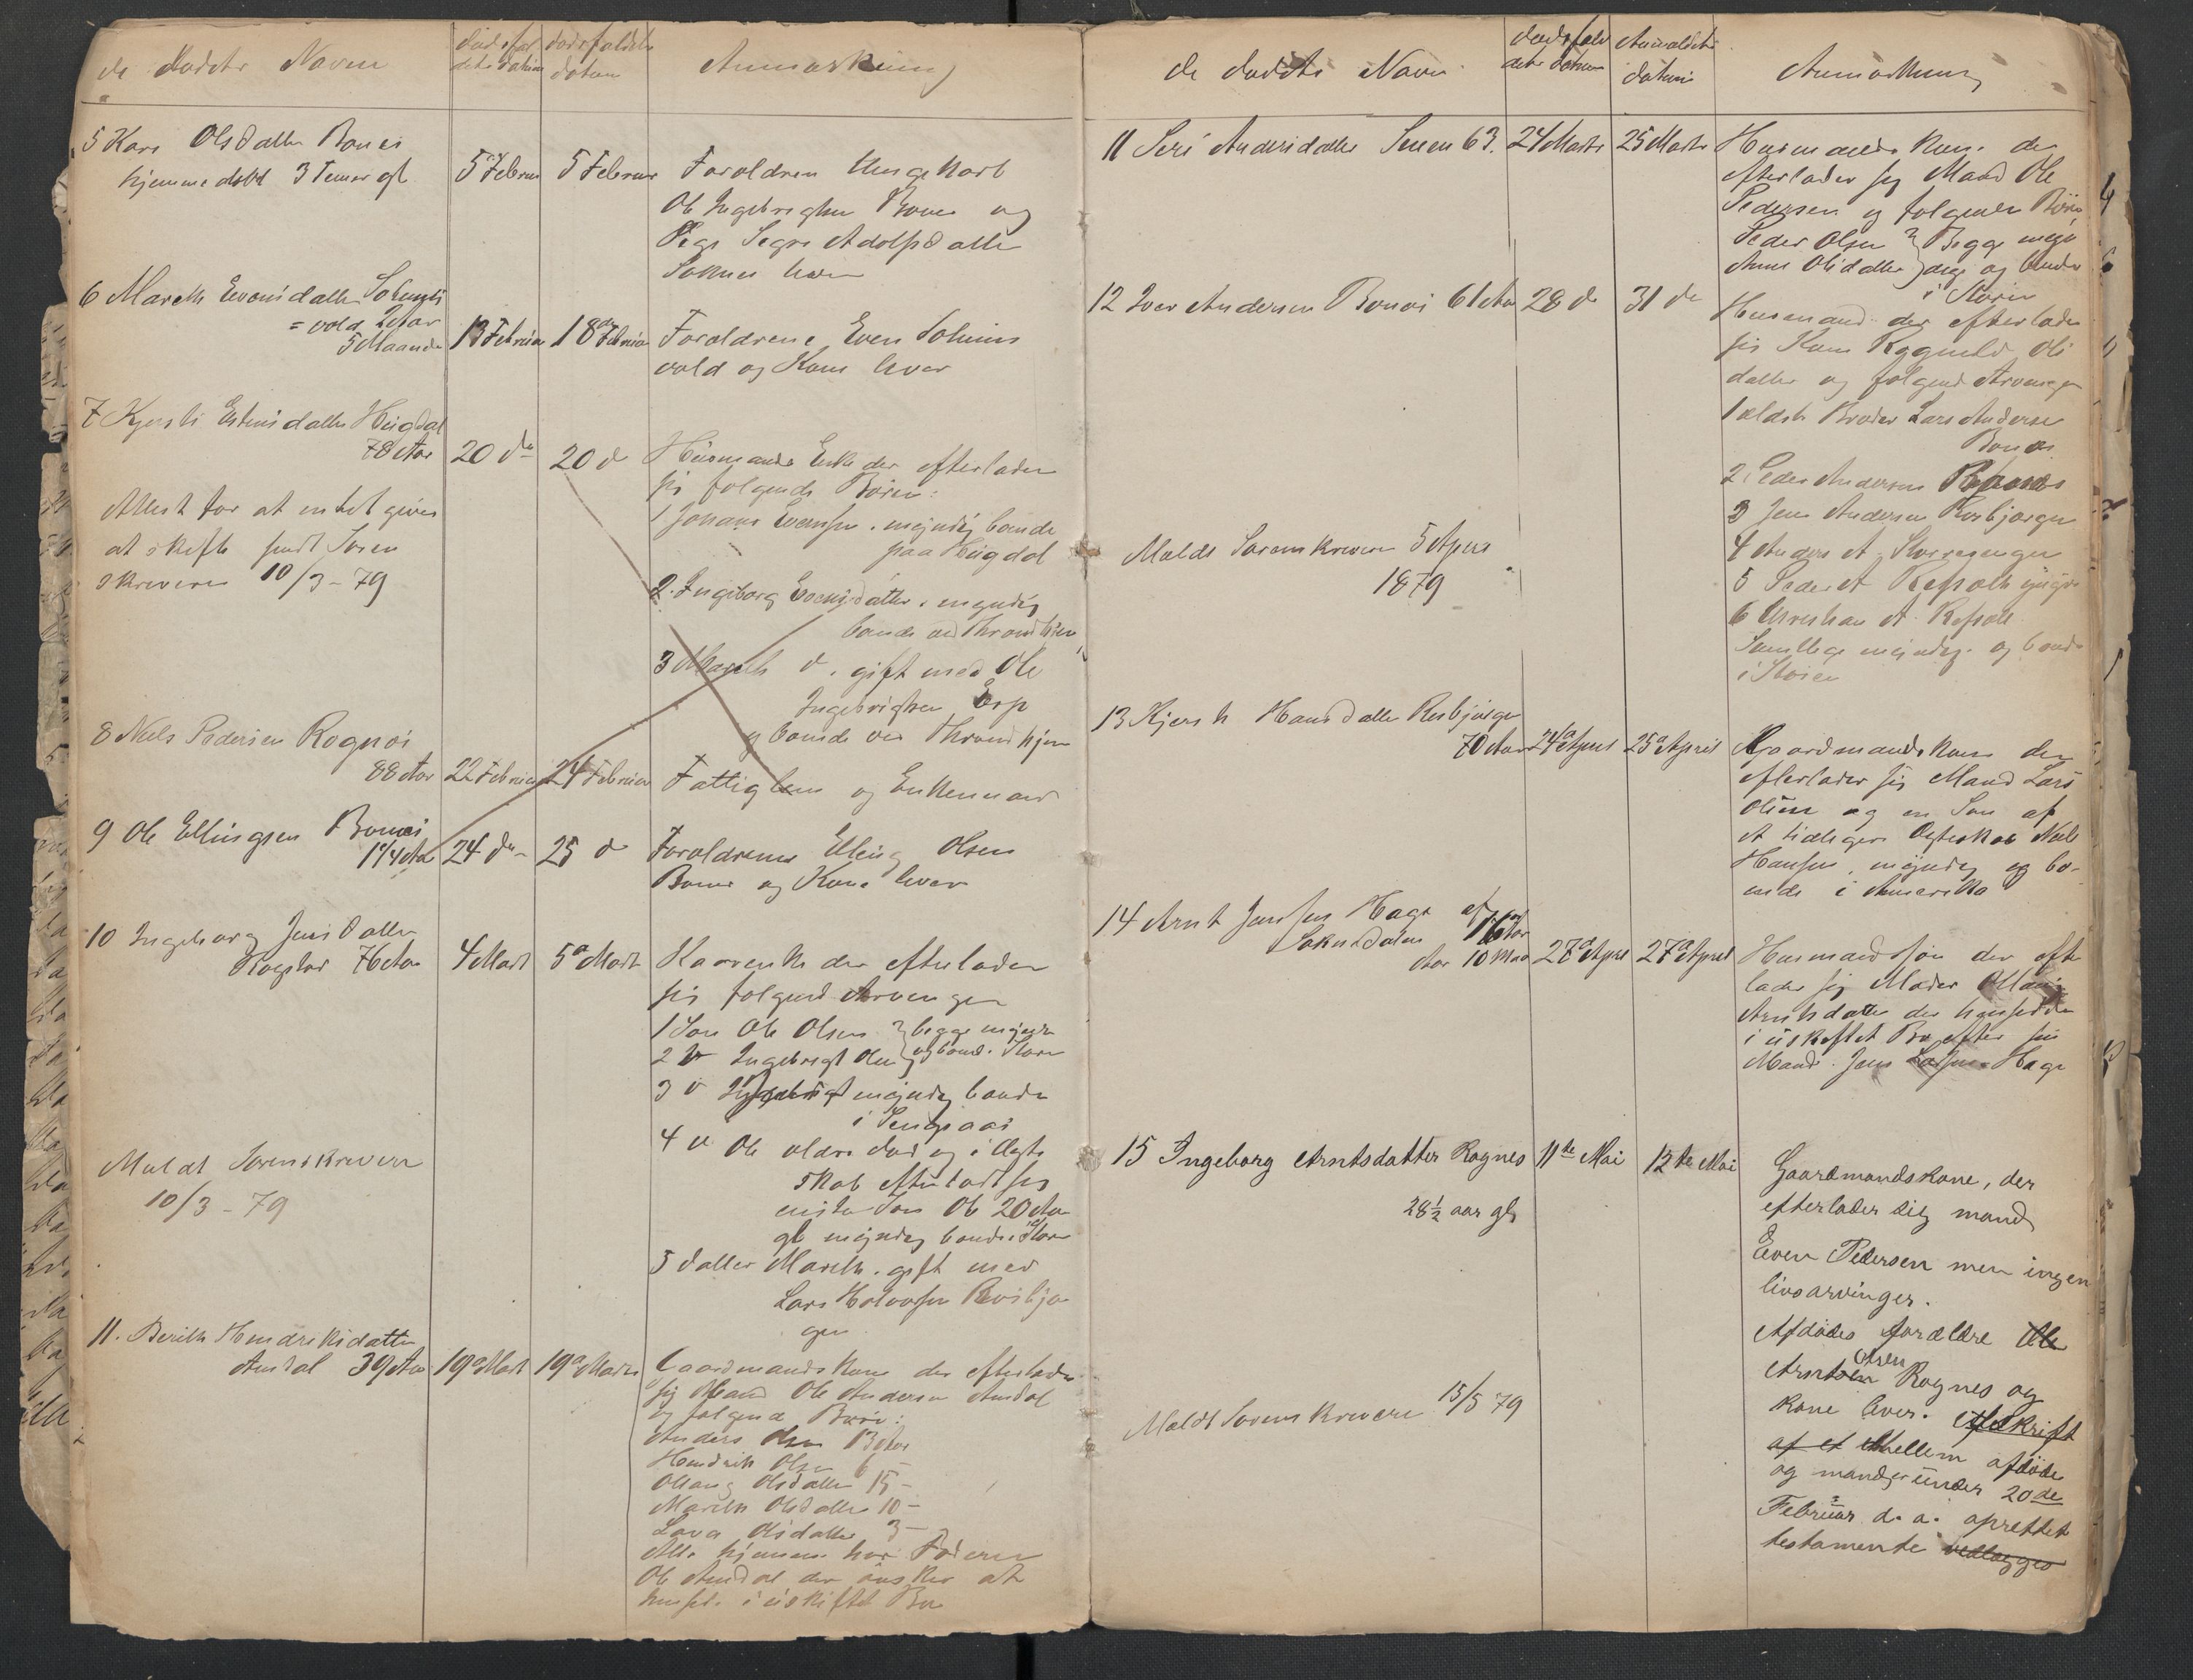 de dødets Navn
dødsfal
dets datum
dødsfaldets
datum
Anmærkning
5 Kari Olsdatter Bonæs
hjemmedøbt 3 Timer gl
5 Februar
5 Februar
Foræladren Ungekarl
Ole Ingebrigtsen Bonæs og
Pige Segri Adolfsdatter
Soknes lever
6 Marith Evensdatter Solums
=vold 2 Aar
5 Maaneder
13 Februar
18de Februar
Forældrene Even Solums
vold og Kone lever
7 Kjersti Estensdatter Hugdal
78 Aar
20 de
20 d
Husmands Enke der efterlader
sig følgende Børn:
1 Johans Evensen. myndig boende
paa Hugdal
2. Ingeborg Evensdatter. myndig
boende ved Throndhjem
3 Marith d. gift med Ole
Ingebrigtsen Esp
og boende ved Throndhjem
Attest for at intet gives
at skifte sendt Soren
skriveren 10/3-79
8 Niels Pedersen Rognæs
88 Aar
22 Februar
24 Februar
Fattiglem og Enkemand
9 Ole Ellingsen Bonæs
1 1/4 Aar
24 de
25 d
Forældrene Elling Olsen
Bonæs og Kone lever
10 Ingeborg Jensdatter
Rogstad 76 Aar
4 Mart
5te Mart
Kaarenke der efterlader
sig følgend Arvinger
1 Søn Ole Olsen } begge myndi
2 d Ingebrigt Olsen } og boend. i Støren
3 d myndig boende
i Singsaas
4 d Ole ældre død og i Ægte
skab efterladt sig
eniste Søn Ole 20 Aar
gl myndig boende i Støren
5 datter Marith. gift med
Lars Halvorsen Rosbjø
gen
Meldt Sorenskriveren
10/3-79
11. Berith Hendriksdatter
Amdal 39 Aar
19de Mart
19de Marts
Gaardmandskone der efterlader
sig Mand Ole Andersen Amdal
og følgende Børn:
Anders Olsen 13 Aar
Hendrik Olsen 6 -
Olsdatter 15 -
Marith Olsdatter 10 -
Olsdatter 3 -
Alle hjemme hos Faderen
Ole Amdal der ønsker at
i uskiftet Bo
de dødets Navn
dødsfald
dets datum
Anmeldets
datum
Anmærkning
11 Seri Andersdatter Senen 63.
24 Marts
25 Marts
Husmands kone der
efterlader sig Mand Ole
Pedersen og følgende Børn
Peder Olsen } Begge myn
Anne Olsdatter } dige og boende
i Støren
12 Iver Andersen Bonæs 61 Aar
28 d
31 de
Husmand der efterlader
sig Kone Ragnild Ols
datter og følgend Arvinger
1 ældste Broder Lars Andersen
Bonæs
2. Peder Andersen
3 Jens Andersen Rosbjørgen
4 Anders A.
5 Peder A. yngre
6 Christian A.
Samtlige myndige og boend
i Støren
Meldt Sorenskriveren 5 April
1879
13 Kjersti Hansdatter Rosbjørgen
70 Aar
24de April
25de April
Gaardmandskone der
efterlader sig Mand Lars
Olsen og en Søn af
et tidligere Ægteskab Niels
Hansen, myndig og bo-
ende i Amerika
14 Arnt Jensen Haga af
Soknedalen 16
Aar 10 Maa
27de April
27de April
Husmandssøn der efter
lader sig Moder
Arntsdatter der hensidder
i uskiftet Bo efter sin
Mand. Jens Haga
15 Ingeborg Arntsdatter Rognes
28 1/2 aar gl
11te Mai
12te Mai
Gaardmandskone, der
efterlader sig mand
Even Pedersen men ingen
livsarvinger.
Afdødes forældre Ole
Arntsen Olsen Rognes og
kone lever. Afskrift
af et Mellem afdøde
og mand under 20de
Februar d. a. oprettet
testamente vedlægges
Meldt Sorenskriveren 15/5 79